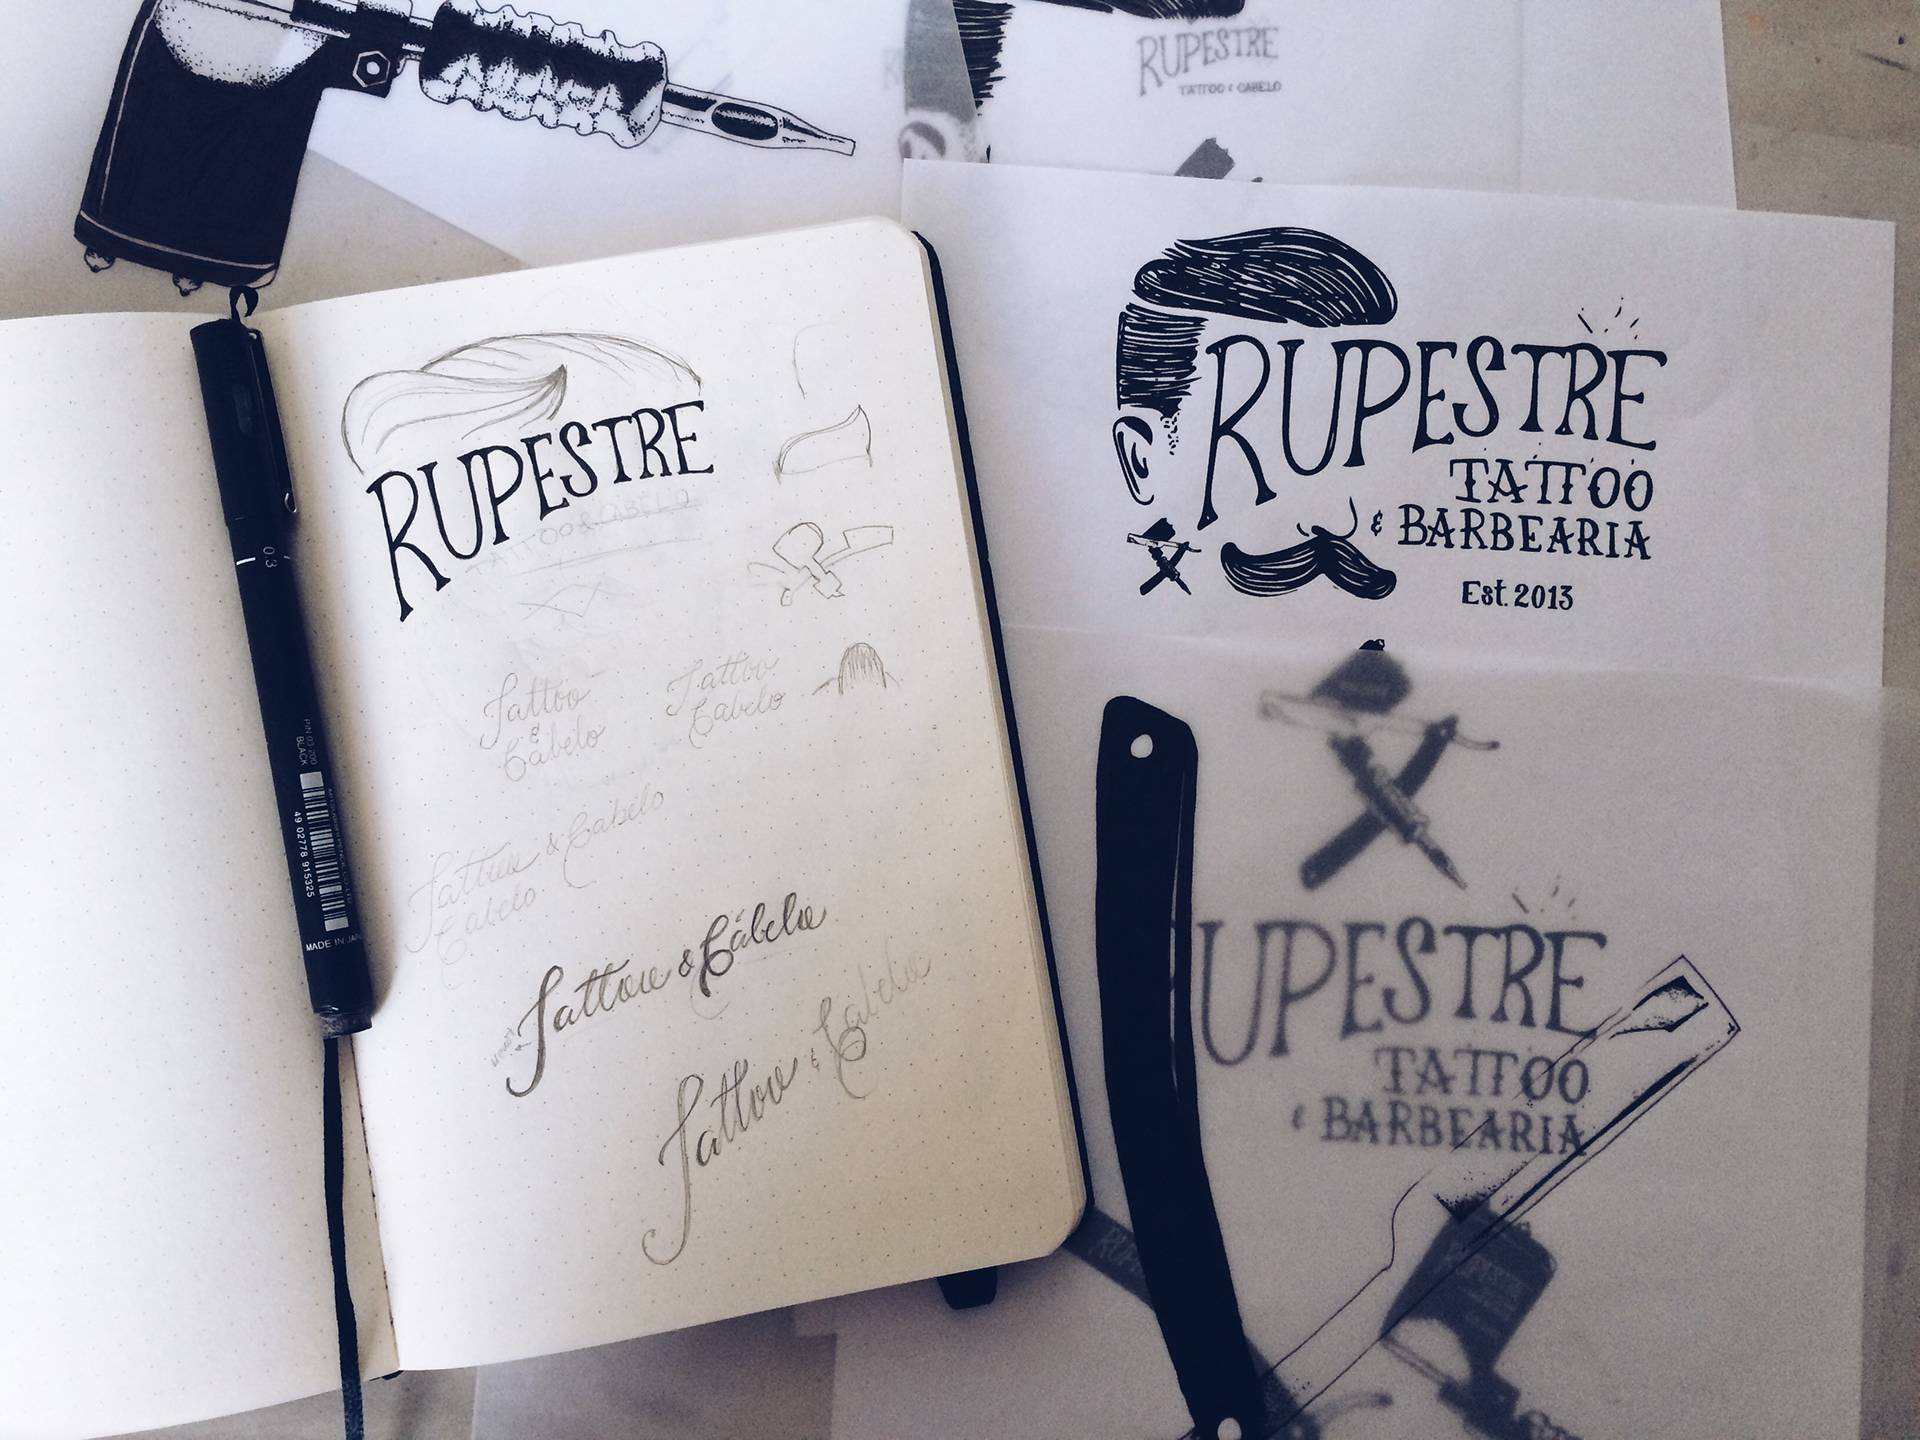 RUPESTRE
TATTOO & CABELO
RUPESTRE
TATTOO
& BARBEARIA
Est. 2013
RUPESTRE
TATTOO & CABELO
Tattoo
&
Cabelo
Tattoo
Cabelo
Tattoo & Cabelo
Cabelo
Tattoo & Cabelo
Tattoo & Cabelo
0.3
PIN 03-200
BLACK
49 02778 915325
MADE IN JAPA
UPESTRE
TATTOO
& BARBEARIA